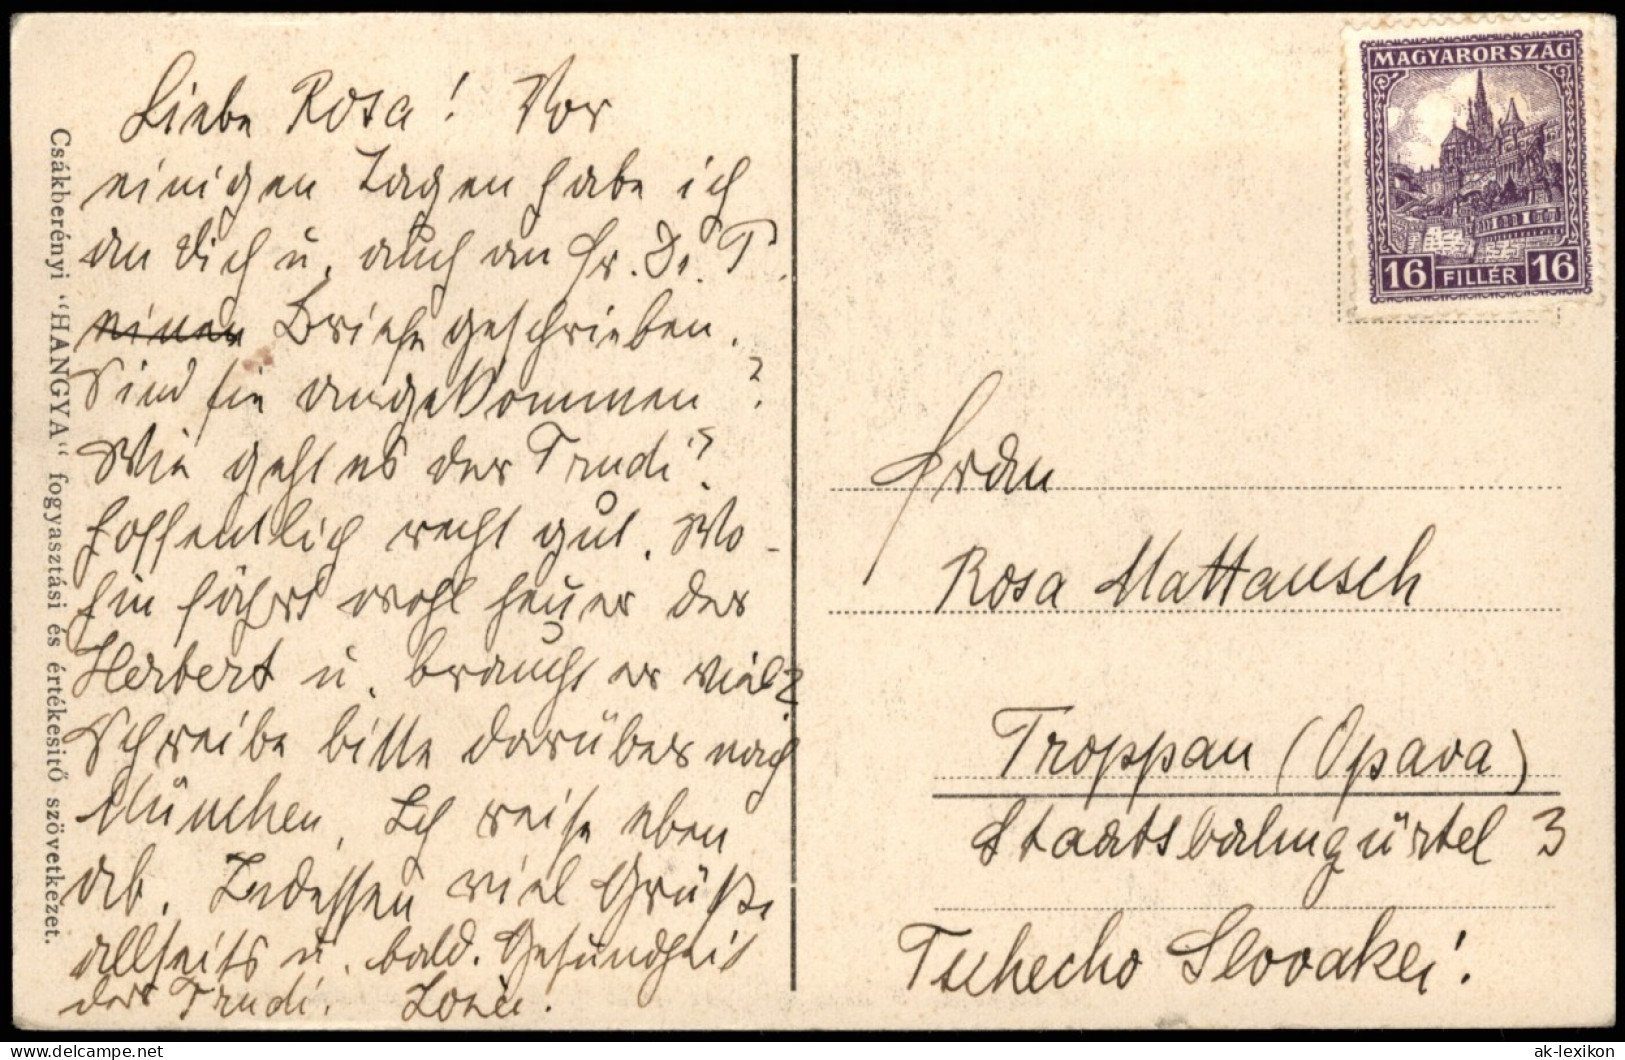 Liebe Rosa! Vor
einigen Tagen habe ich
an Dich u. auch an Fr. Dr. P.
einen Briefe geschrieben.
Sind sie angekommen?
Wie geht es der Trudi?
Hoffentlich recht gut. Wo-
hin fährt wohl heuer der
Herbert u. braucht er viel?
Schreibe bitte darüber nach
München. Ich reise eben
ab. Indessen viel Grüße
allseits u. bald. Gesundheit
der Trudi.
Csákberényi "HANGYA" fogyasztási és értékesitő szövetkezet.
MAGYARORSZÁG
16 FILLÉR 16
Frau
Rosa Mattausch
Troppau (Opava)
Staatsbahngürtel 3
Tschecho Slovakei!
delcampe.net
ak-lexikon